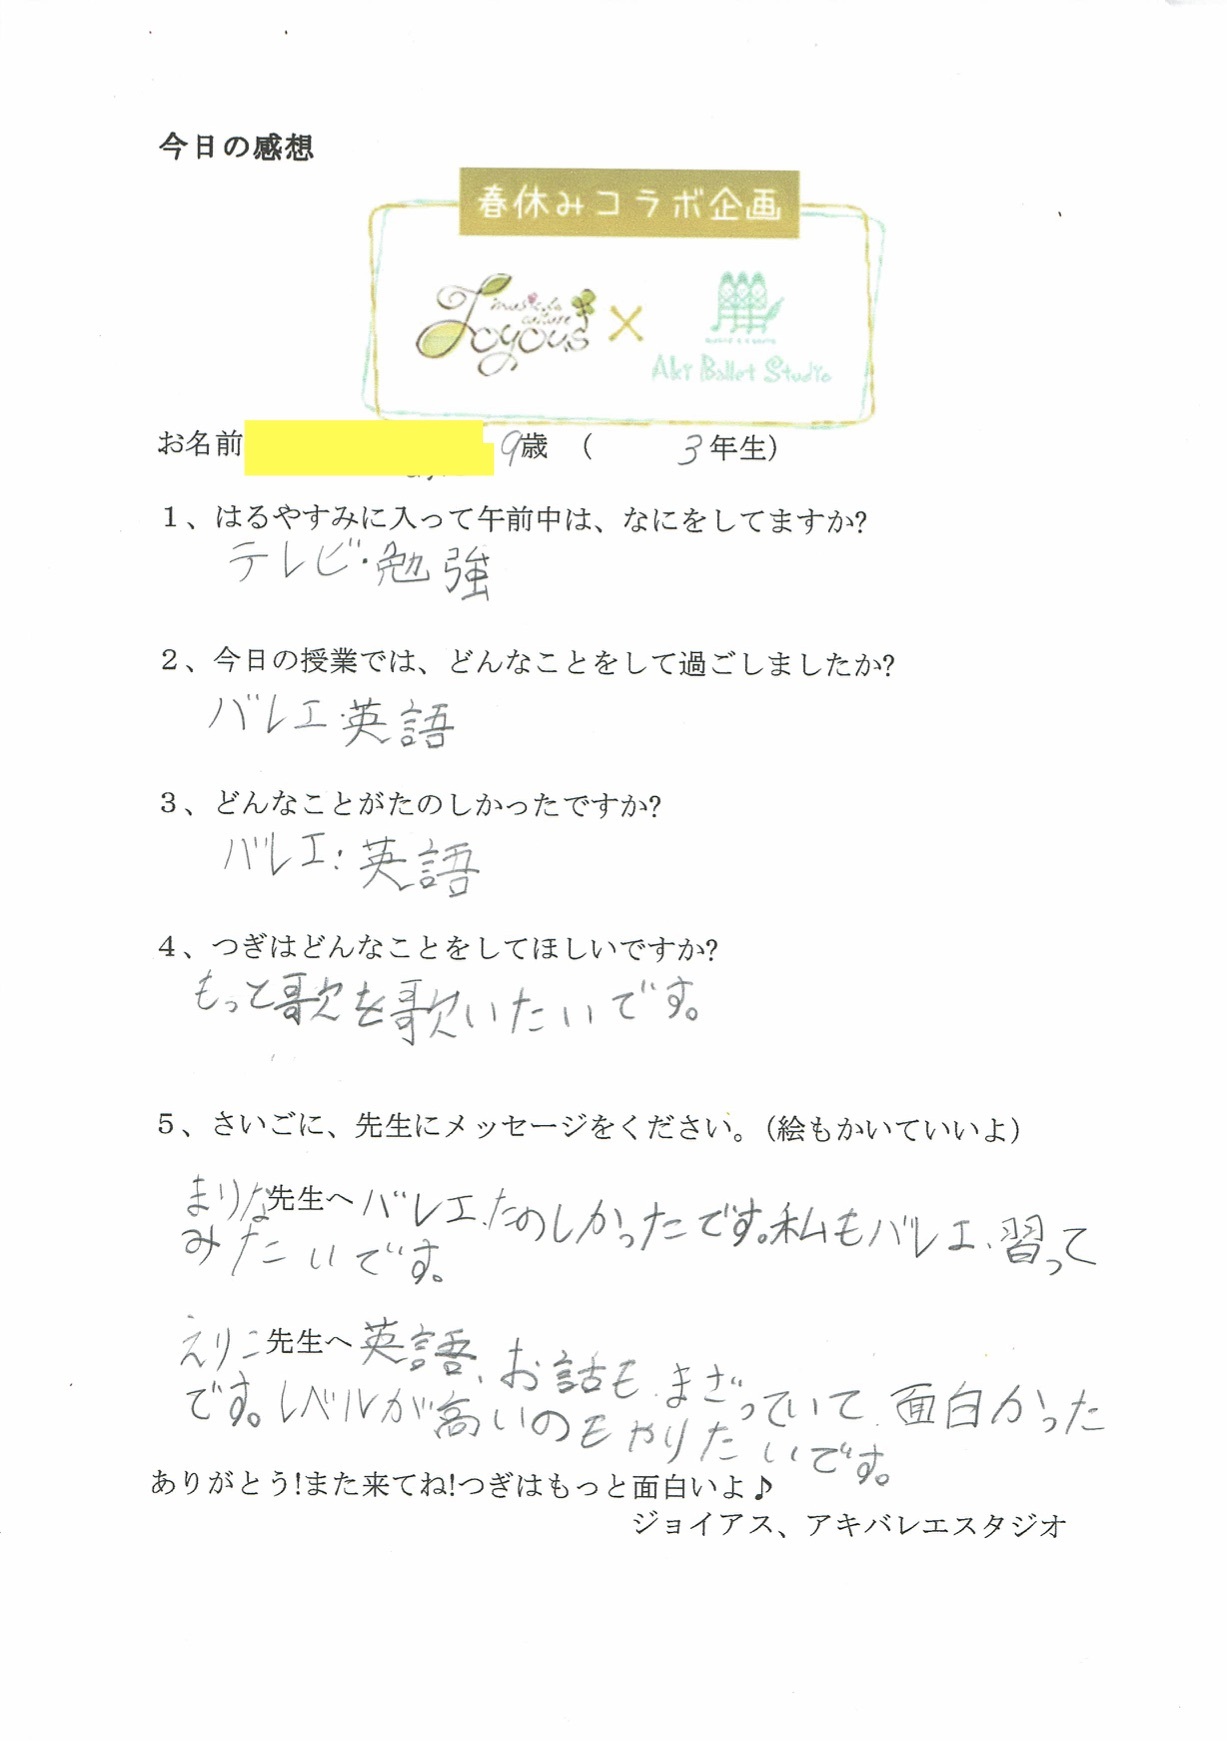 今日の感想
春休みコラボ企画
music & culture
Joyous × Aki Ballet Studio
お名前 9歳 ( 3年生)
１、はるやすみに入って午前中は、なにをしてますか?
テレビ・勉強
２、今日の授業では、どんなことをして過ごしましたか?
バレエ・英語
３、どんなことがたのしかったですか?
バレエ:英語
４、つぎはどんなことをしてほしいですか?
もっと歌を歌いたいです。
５、さいごに、先生にメッセージをください。(絵もかいていいよ)
まりな先生へ バレエ、たのしかったです。私もバレエ、習って
みたいです。
えりこ先生へ 英語、お話も、まざっていて、面白かった
です。レベルが高いのもやりたいです。
ありがとう!また来てね!つぎはもっと面白いよ♪
ジョイアス、アキバレエスタジオ